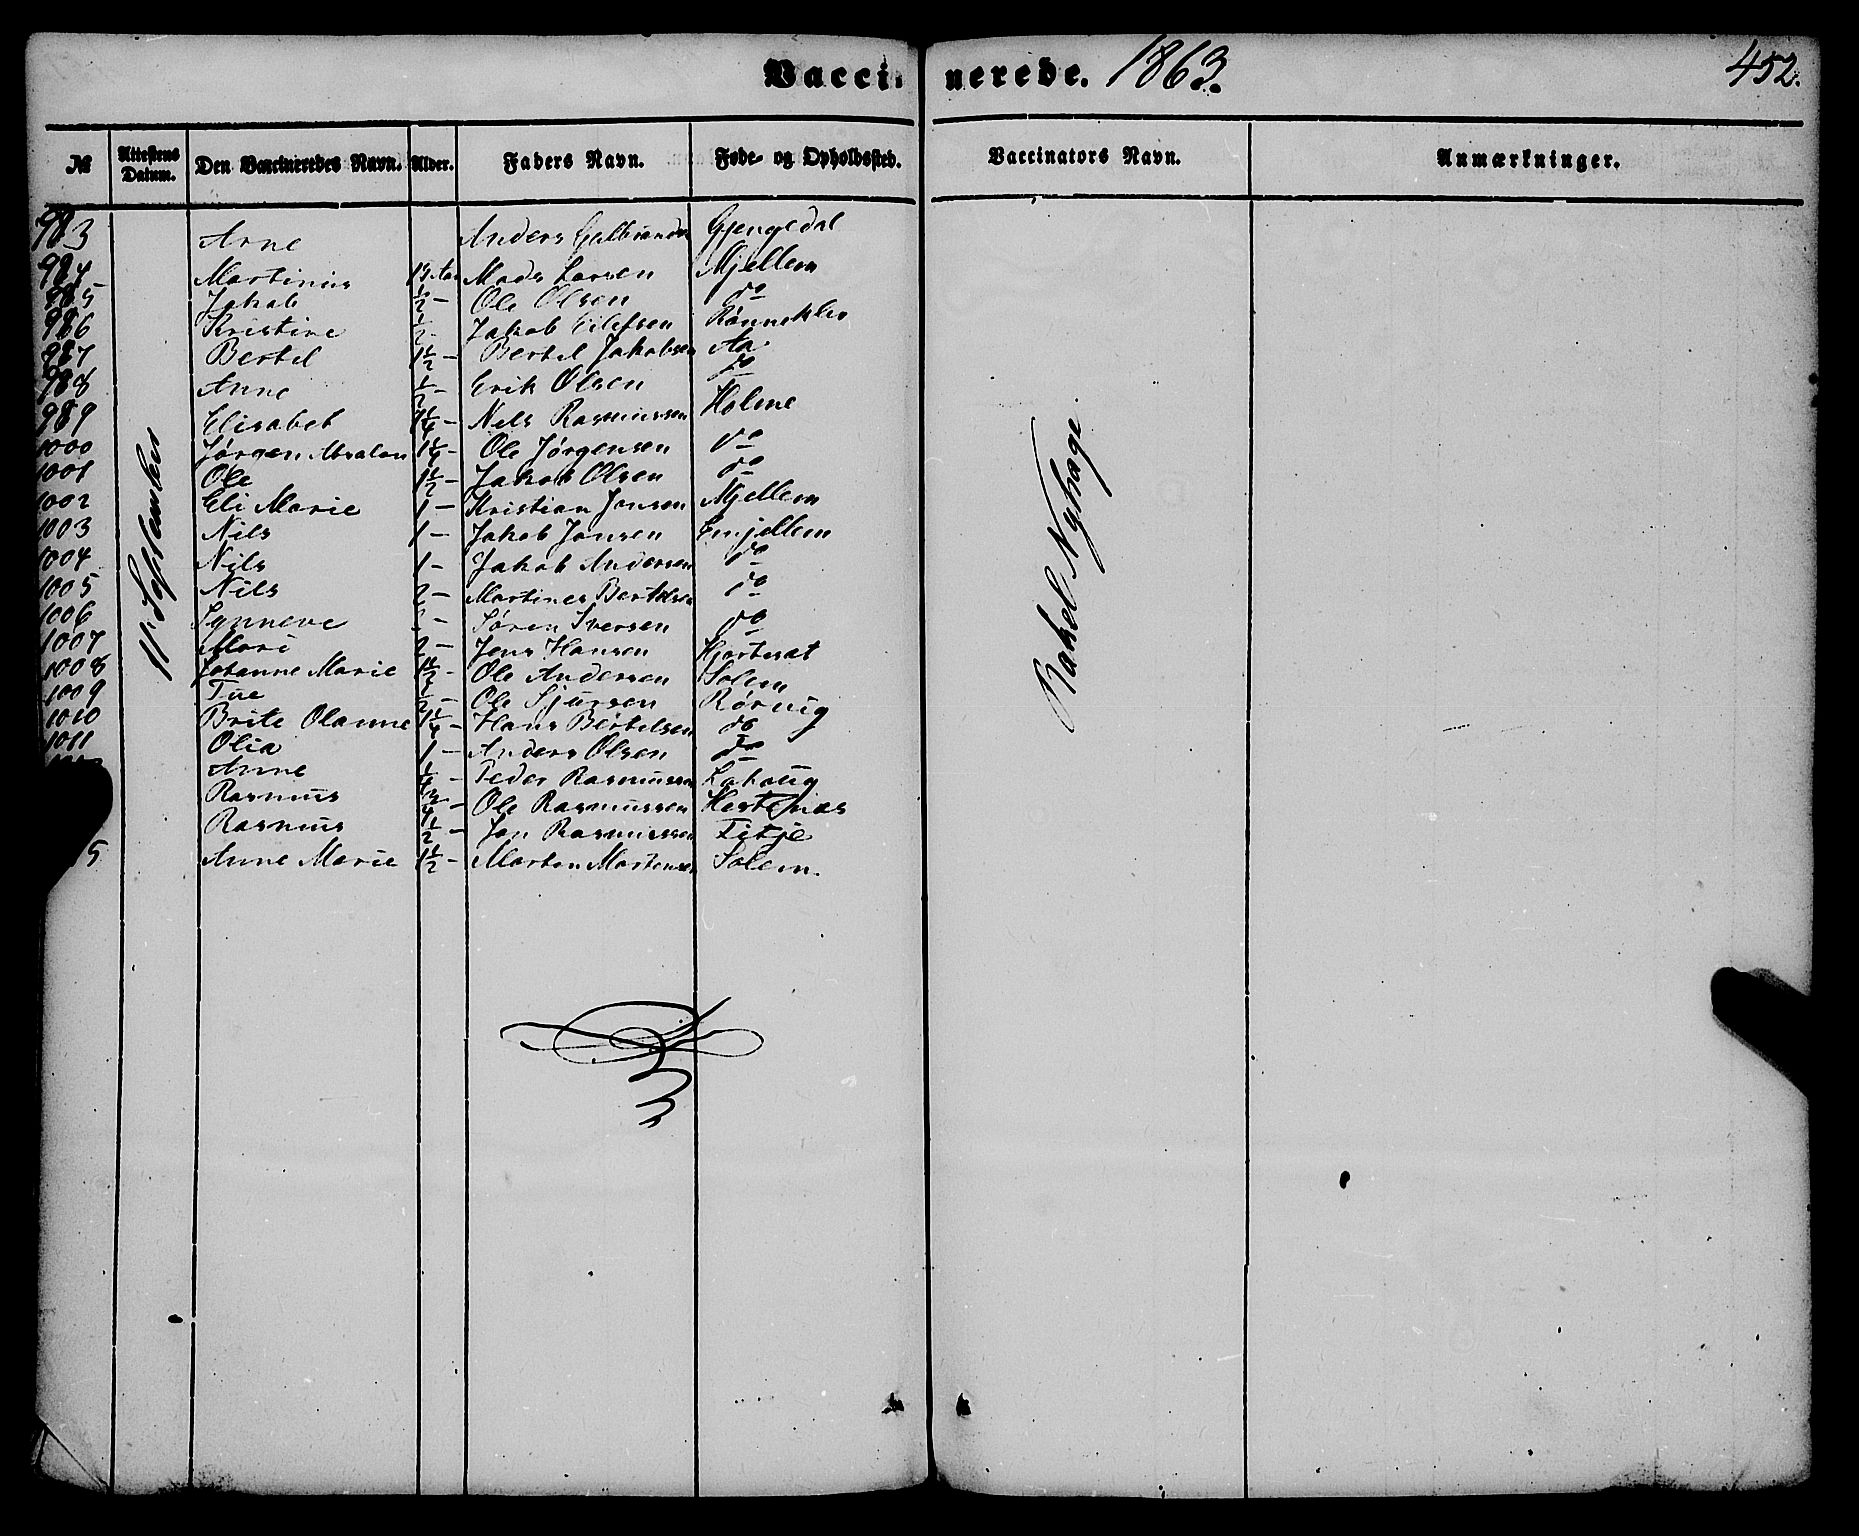 Vaccinerede. 1863. 452.
№ Attestens Datum. Den Vaccineredes Navn. Alder. Faders Navn. Føde- og Opholdssted. Vaccinators Navn. Anmærkninger.
11 September
Rakel Nyhage
983 Arne Anders Gjengedal
984 Martinus Mads Larsen Mjellem
985 Jakob ½ - Ole Olsen do
986 Kristine ½ - Jakob Eilefsen Rønneklev
987 Bertel 1½ - Bertel Jakobsen Aa
988 Anne ½ - Erik Olsen do
989 Elisabet 1¼ - Nils Rasmussen Holme
1000 Jørgen Absalon 1¼ - Ole Jørgensen do
1001 Ole 1½ - Jakob Olsen do
1002 Eli Marie 1 - Kristian Jonsen Mjellem
1003 Nils 1 - Jakob Jonsen Emjellem
1004 Nils 1 - Jakob Andersen do
1005 Nils 2 - Martines Bertelsen do
1006 Synneve - Søren Iversen do
1007 Mari 2 - Jens Hansen Hjortesæt
1008 Johanne Marie 1½ - Ole Andersen Solem
1009 Tue ½ - Ole Sjursen Rørvig
1010 Brite Olanne 1¼ - Hans Bertelsen do
1011 Olia 1 - Anders Olsen do
Anne ¼ - Peder Rasmussen Lahaug
Rasmus ¾ - Ole Rasmussen Hestenæs
Rasmus ½ - Jon Rasmussen Fitje
5 Anne Marie 1½ - Morten Mortensen Solem.